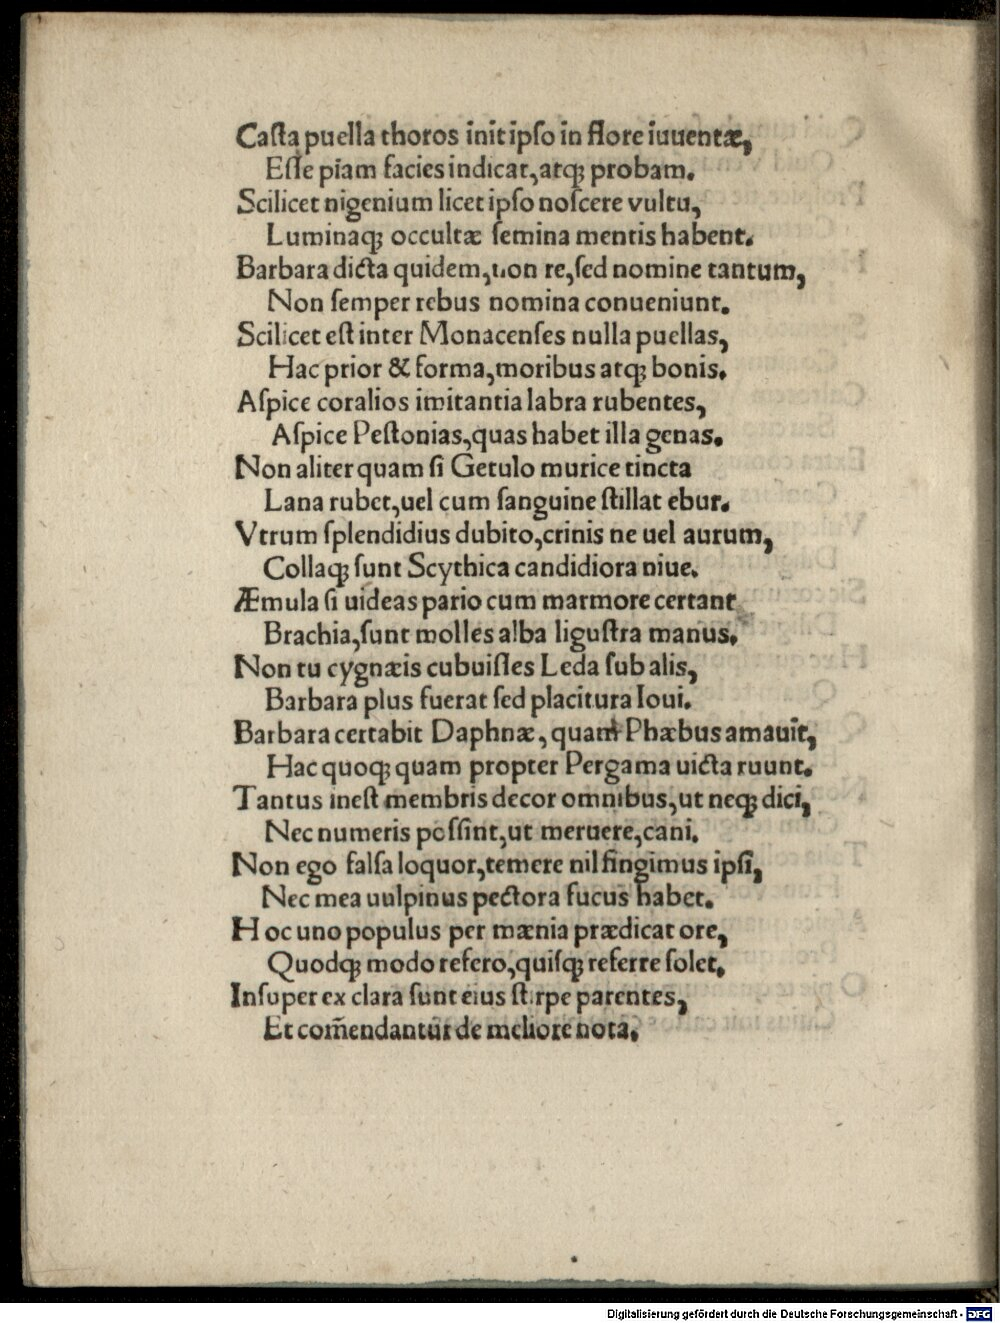 Caſta puella thoros init ipſo in flore iuuentæ,
Eſſe piam facies indicat, atqꝫ probam.
Scilicet nigenium licet ipſo noſcere vultu,
Luminaqꝫ occultæ ſemina mentis habent.
Barbara dicta quidem, non re, ſed nomine tantum,
Non ſemper rebus nomina conueniunt.
Scilicet eſt inter Monacenſes nulla puellas,
Hac prior & forma, moribus atqꝫ bonis.
Aſpice coralios imitantia labra rubentes,
Aſpice Peſtonias, quas habet illa genas.
Non aliter quam ſi Getulo murice tincta
Lana rubet, uel cum ſanguine ſtillat ebur.
Vtrum ſplendidius dubito, crinis ne uel aurum,
Collaqꝫ ſunt Scythica candidiora niue.
Æmula ſi uideas pario cum marmore certant
Brachia, ſunt molles alba liguſtra manus.
Non tu cygnæis cubuiſſes Leda ſub alis,
Barbara plus fuerat ſed placitura Ioui.
Barbara certabit Daphnæ, quam Phæbus amauit,
Hac quoqꝫ quam propter Pergama uicta ruunt.
Tantus ineſt membris decor omnibus, ut neqꝫ dici,
Nec numeris poſſint, ut meruere, cani.
Non ego falſa loquor, temere nil fingimus ipſi,
Nec mea uulpinus pectora fucus habet.
Hoc uno populus per mænia prædicat ore,
Quodqꝫ modo refero, quiſqꝫ referre ſolet.
Inſuper ex clara ſunt eius ſtirpe parentes,
Et com̃endantur de meliore nota.
Digitalisierung gefördert durch die Deutsche Forschungsgemeinschaft - DFG